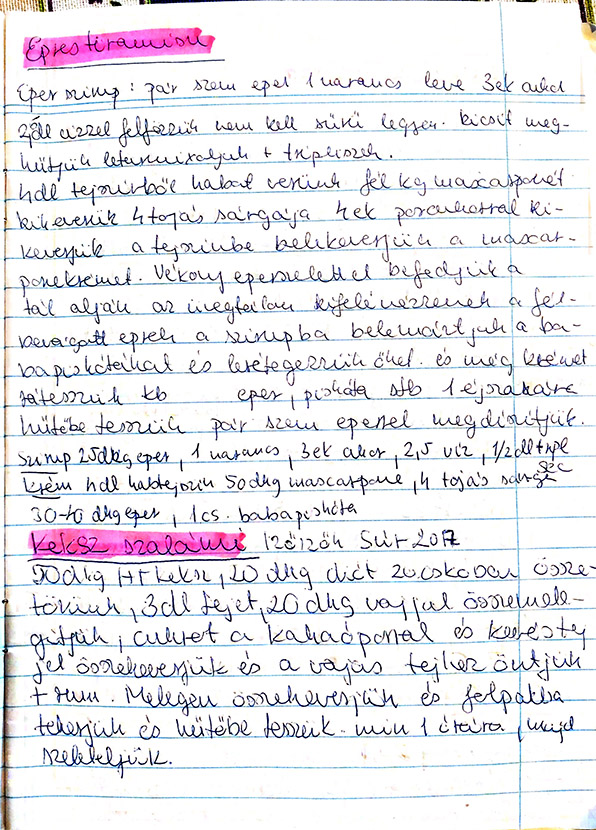 Epres tiramisu
Eper szirup: pár szem eper 1 narancs leve 3ek cukor
vízzel felfőzzük nem kell sűrű legyen. kicsit meg-
hűtjük leturmixoljuk + tripliszek.
4dl tejszínből habot verünk fél kg mascarponét
kikeverik 4 tojás sárgája 4ek porcukorral ki-
keverjük a tejszínbe belekeverjük a mascar-
ponekrémet. Vékony eperszelettel befedjük a
tál alján az üvegtálon kifelé nézzenek a fél-
bevágott eprek a szirupba belemártjuk a ba-
bapiskótákat és lerétegezzük őket. és még krémet
ráteszünk kb eper, piskóta stb 1 éjszakára
hűtőbe tesszük pár szem eperrel megdíszítjük.
Szirup 25dkg eper, 1 narancs, 3ek cukor, 2,5 víz, 1/2dl tripl
sec
Krém 4dl habtejszín 50dkg mascarpone, 4 tojás sárgája
30-40 dkg eper, 1cs. babapiskóta
Keksz szalámi Ízőrzők Súr 2017
50dkg HF keksz, 20 dkg diót zacskóban össze-
törünk, 3dl tejet, 20 dkg vajjal összemele-
gítjük, cukrot a kakaóporral és
jel összekeverjük és a vajas tejhez öntjük
+ rum. Melegen összekeverjük és felpakba
tekerjük és hűtőbe tesszük. min 1 órára, majd
szeleteljük.